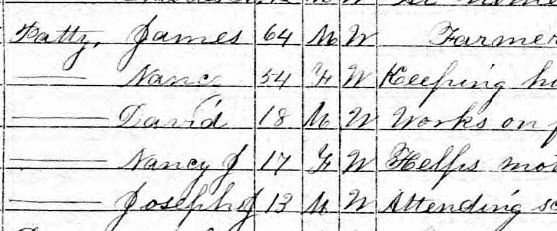 Fatty, James 64 M W Farmer
—— Nanc 54 F W Keeping h
—— David 18 M W Works on f
—— Nancy J 17 F W Helps mo
—— Joseph J 13 M W Attending sc